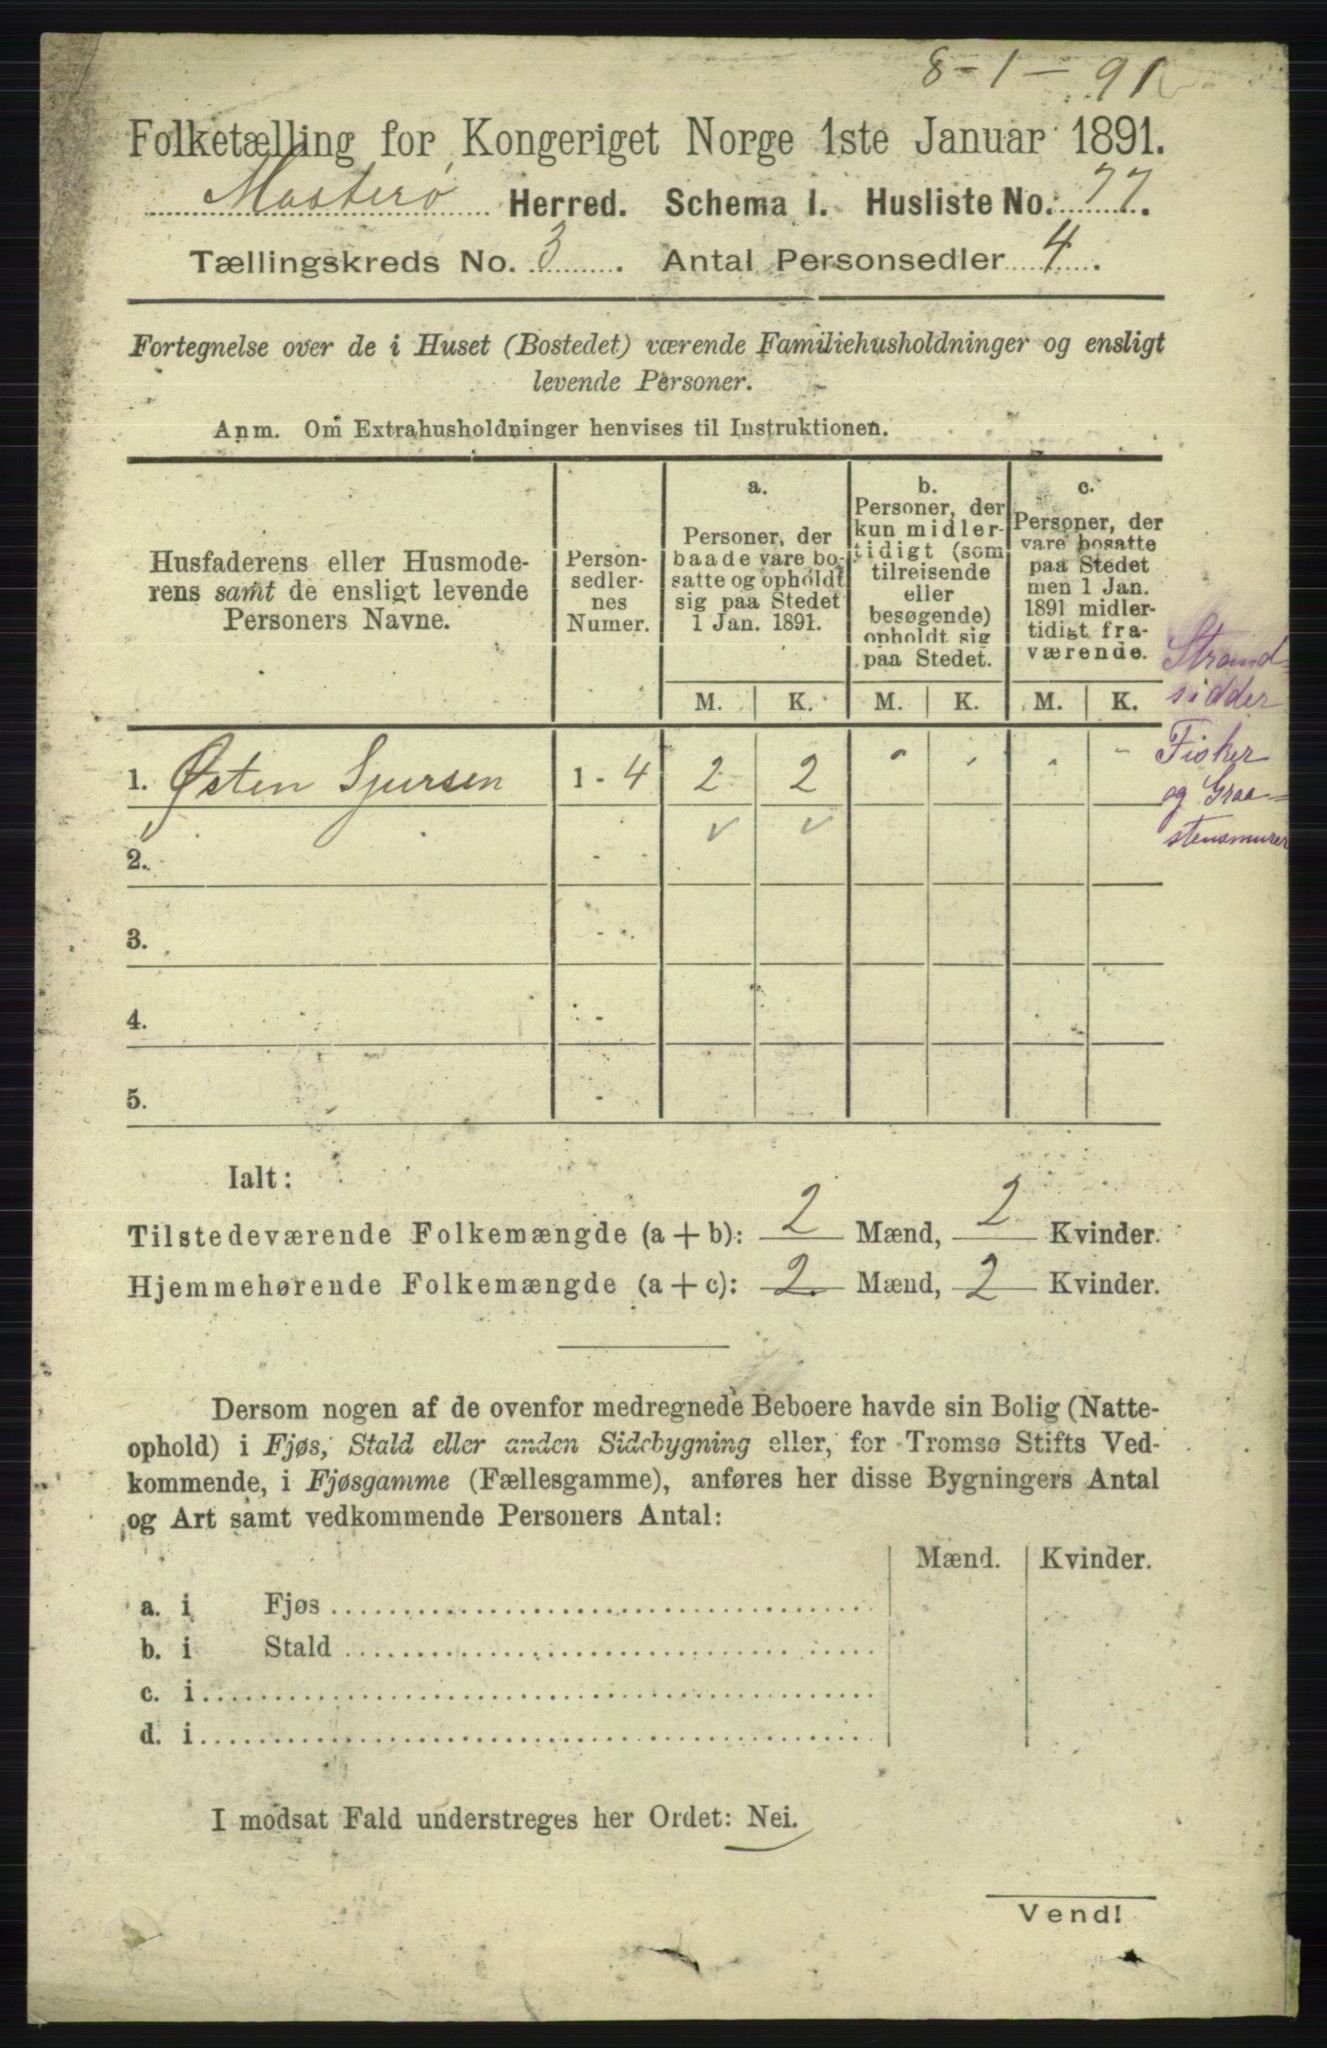 8-1-91
Folketælling for Kongeriget Norge 1ste Januar 1891.
Mosterø Herred. Schema I. Husliste No. 77.
Tællingskreds No. 3. Antal Personsedler 4.
Fortegnelse over de i Huset (Bostedet) værende Familiehusholdninger og ensligt
levende Personer.
Anm. Om Extrahusholdninger henvises til Instruktionen.
Husfaderens eller Husmode-
rens samt de ensligt levende
Personers Navne.
Person-
sedler-
nes
Numer.
a.
Personer, der
baade vare bo-
satte og opholdt
sig paa Stedet
1 Jan. 1891.
b.
Personer, der
kun midler-
tidigt (som
tilreisende
eller
besøgende)
opholdt sig
paa Stedet.
c.
Personer, der
vare bosatte
paa Stedet
men 1 Jan.
1891 midler-
tidigt fra-
værende.
M. K. M. K. M. K.
Strand-
sidder
Fisker
og Graa-
stensmurer
1. Østen Sjursen 1 - 4 2 2 " " " "
2. -
3. -
4. -
5. -
Ialt:
Tilstedeværende Folkemængde (a + b): 2 Mænd, 2 Kvinder.
Hjemmehørende Folkemængde (a + c): 2 Mænd, 2 Kvinder.
Dersom nogen af de ovenfor medregnede Beboere havde sin Bolig (Natte-
ophold) i Fjøs, Stald eller anden Sidebygning eller, for Tromsø Stifts Ved-
kommende, i Fjøsgamme (Fællesgamme), anføres her disse Bygningers Antal
og Art samt vedkommende Personers Antal:
Mænd. Kvinder.
a. i Fjøs
b. i Stald
c. i
d. i
I modsat Fald understreges her Ordet: Nei.
Vend!